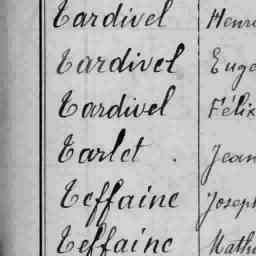 Tardivel Henri
Tardivel Euge
Tardivel Félix
Tarlet . Jean
Teffaine Joseph
Teffaine Math